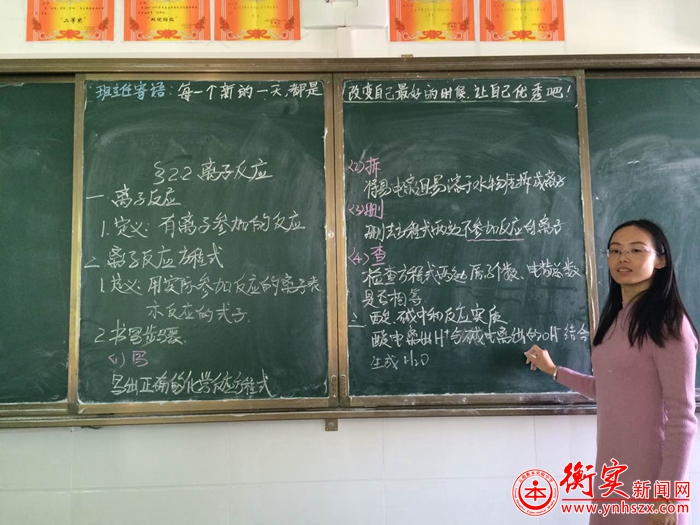 "二等奖"
班主任寄语：每一个新的一天都是
改变自己最好的时候，让自己优秀吧！
§2.2 离子反应
一 离子反应
1.定义：有离子参加的反应
2 离子反应方程式
1.定义：用实际参加反应的离子表
示反应的式子
2.书写步骤
(1)写
写出正确的化学反应方程式
(2)拆
(3)删
删去方程式两边不参加反应的离子
(4)查
检查方程式两边原子个数、电荷总数
是否相等
酸碱中和反应实质
酸中离出H⁺与碱中离出的OH⁻结合
生成H₂O
衡实新闻网
www.ynhszx.com